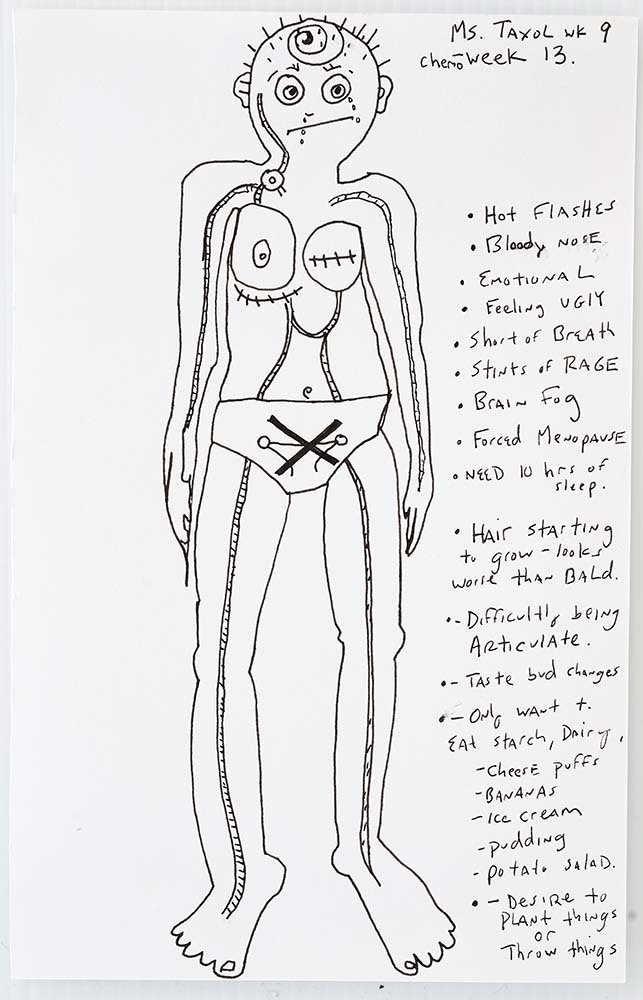 Ms. Taxol wk 9
chemo week 13.
• Hot Flashes
• Bloody Nose
• Emotional
• Feeling Ugly
• Short of Breath
• Stints of Rage
• Brain Fog
• Forced Menopause
• Need 10 hrs of
sleep.
• Hair starting
to grow - looks
worse than Bald.
• - Difficultly being
Articulate.
• - Taste bud changes
• - Only want t.
Eat starch, Dairy,
- Cheese puffs
- Bananas
- Ice cream
- pudding
- potato salad.
• - Desire to
Plant things
or
Throw things